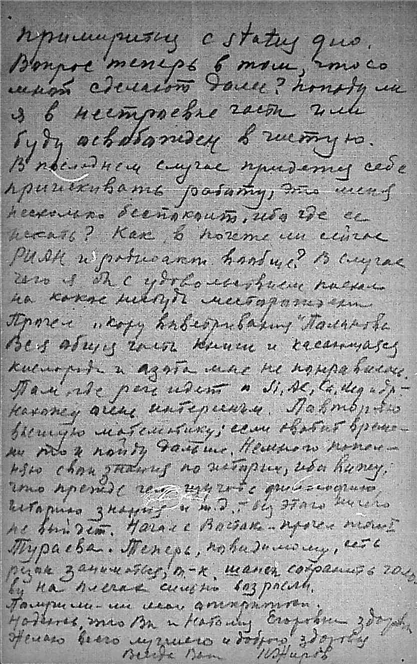 примириться с status quo.
Вопрос теперь в том, что со
мной сделают далее? Попаду ли
я в нестроевые части или
буду освобожден в чистую.
В последнем случае придется себе
приискивать работу, это меня
несколько беспокоит, ибо где ее
искать? Как, в почете ли сейчас
РИАН и радиоакт. вообще? В случае
чего я бы с удовольствием поехал
на какое нибудь месторождение
Прочел „Кору выветривания" Полынова
Вся общая часть книги и касающаяся
кислорода и азота мне не понравилась.
Там, где речь идет о Si, Al, Ca, Mg и др.
нахожу очень интересным. Повторяю
высшую математику; если хватит време-
ни то и пойду дальше. Немного попол-
няю свои знания по истории, ибо вижу,
что прежде чем изучать философию,
историю знания и т.д. - без этого ничего
не выйдет. Начал с Востока - прочел
Тураева. Теперь, повидимому, есть
резон заниматься, т.к. шансы сохранить голо-
ву на плечах сильно возросли.
Получили-ли мои открытки
Надеюсь, что Вы и Наталья Егоровна здоровы
Желаю всего лучшего и доброго здоровья
Всегда Ваш КЖиров